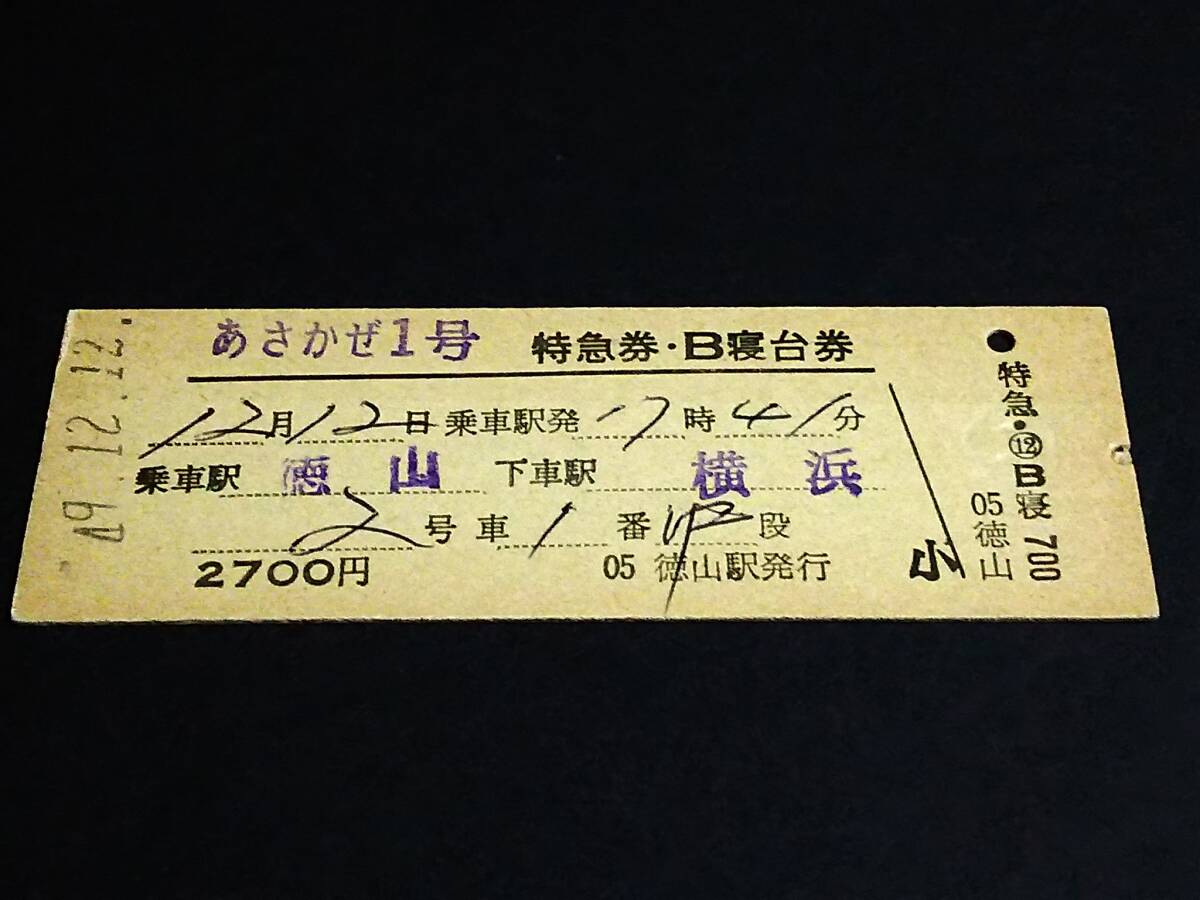 49.12.12.
あさかぜ1号 特急券・B寝台券
12月12日乗車駅発17時41分
乗車駅 徳山 下車駅 横浜
2号車1番中段
2700円 05 徳山駅発行
小
特急・⑫B寝 700
05徳山